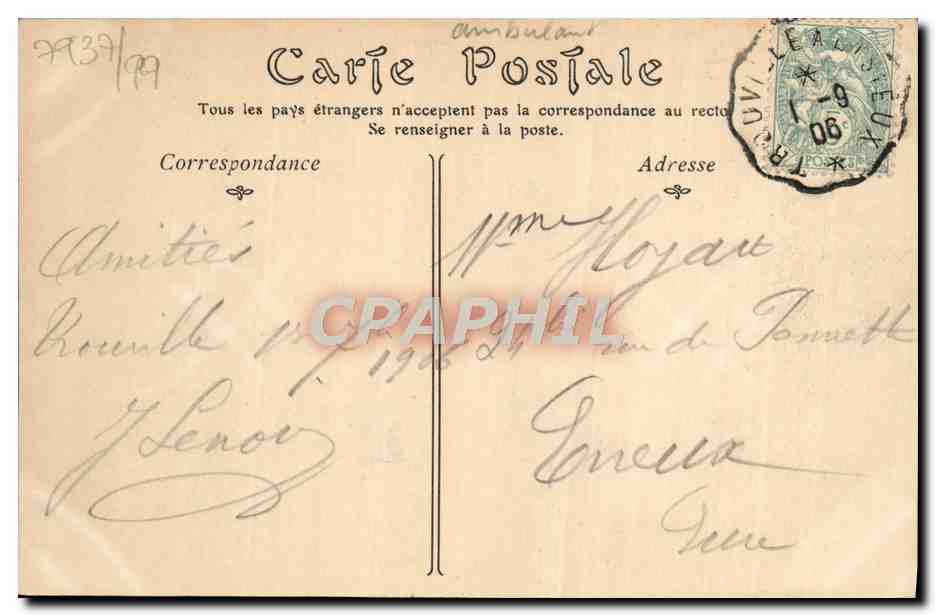 7937/99
ambulant
Carte Postale
Tous les pays étrangers n'acceptent pas la correspondance au recto
Se renseigner à la poste.
TROUVILLE A LISIEUX
1-9
06
POSTES
Correspondance
Adresse
Amitiés
Trouville 1er 7bre 1906
J Lenoir
Mme Noyau
24 bis rue de
Evreux
Eure
CRAPHIL